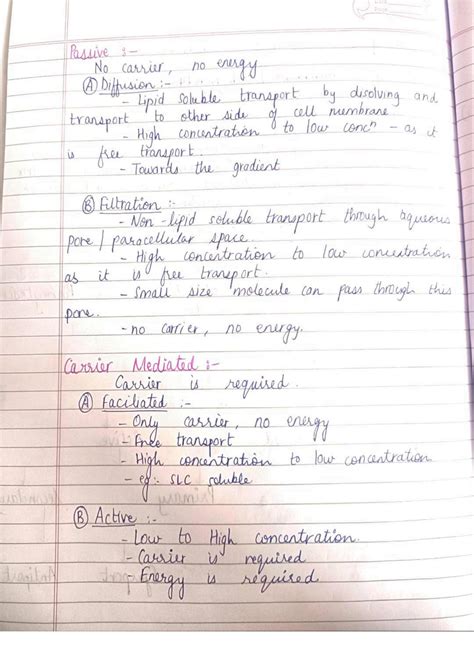 Passive :-
No carrier, no energy
(A) Diffusion :-
- Lipid soluble transport by disolving and
transport to other side of cell membrane.
- High concentration to low concn - as it
is free transport.
- Towards the gradient
(B) Filtration :-
- Non-lipid soluble transport through aqueous
pore / paracellular space.
- High concentration to low concentration
as it is free transport.
- Small size molecule can pass through this
pore.
- no carrier, no energy.
Carrier Mediated :-
Carrier is required.
(A) Faciliated :-
- Only carrier, no energy
- Free transport
- High concentration to low concentration
- eg:- SLC soluble
(B) Active :-
- Low to High concentration.
- Carrier is required
- Energy is required.